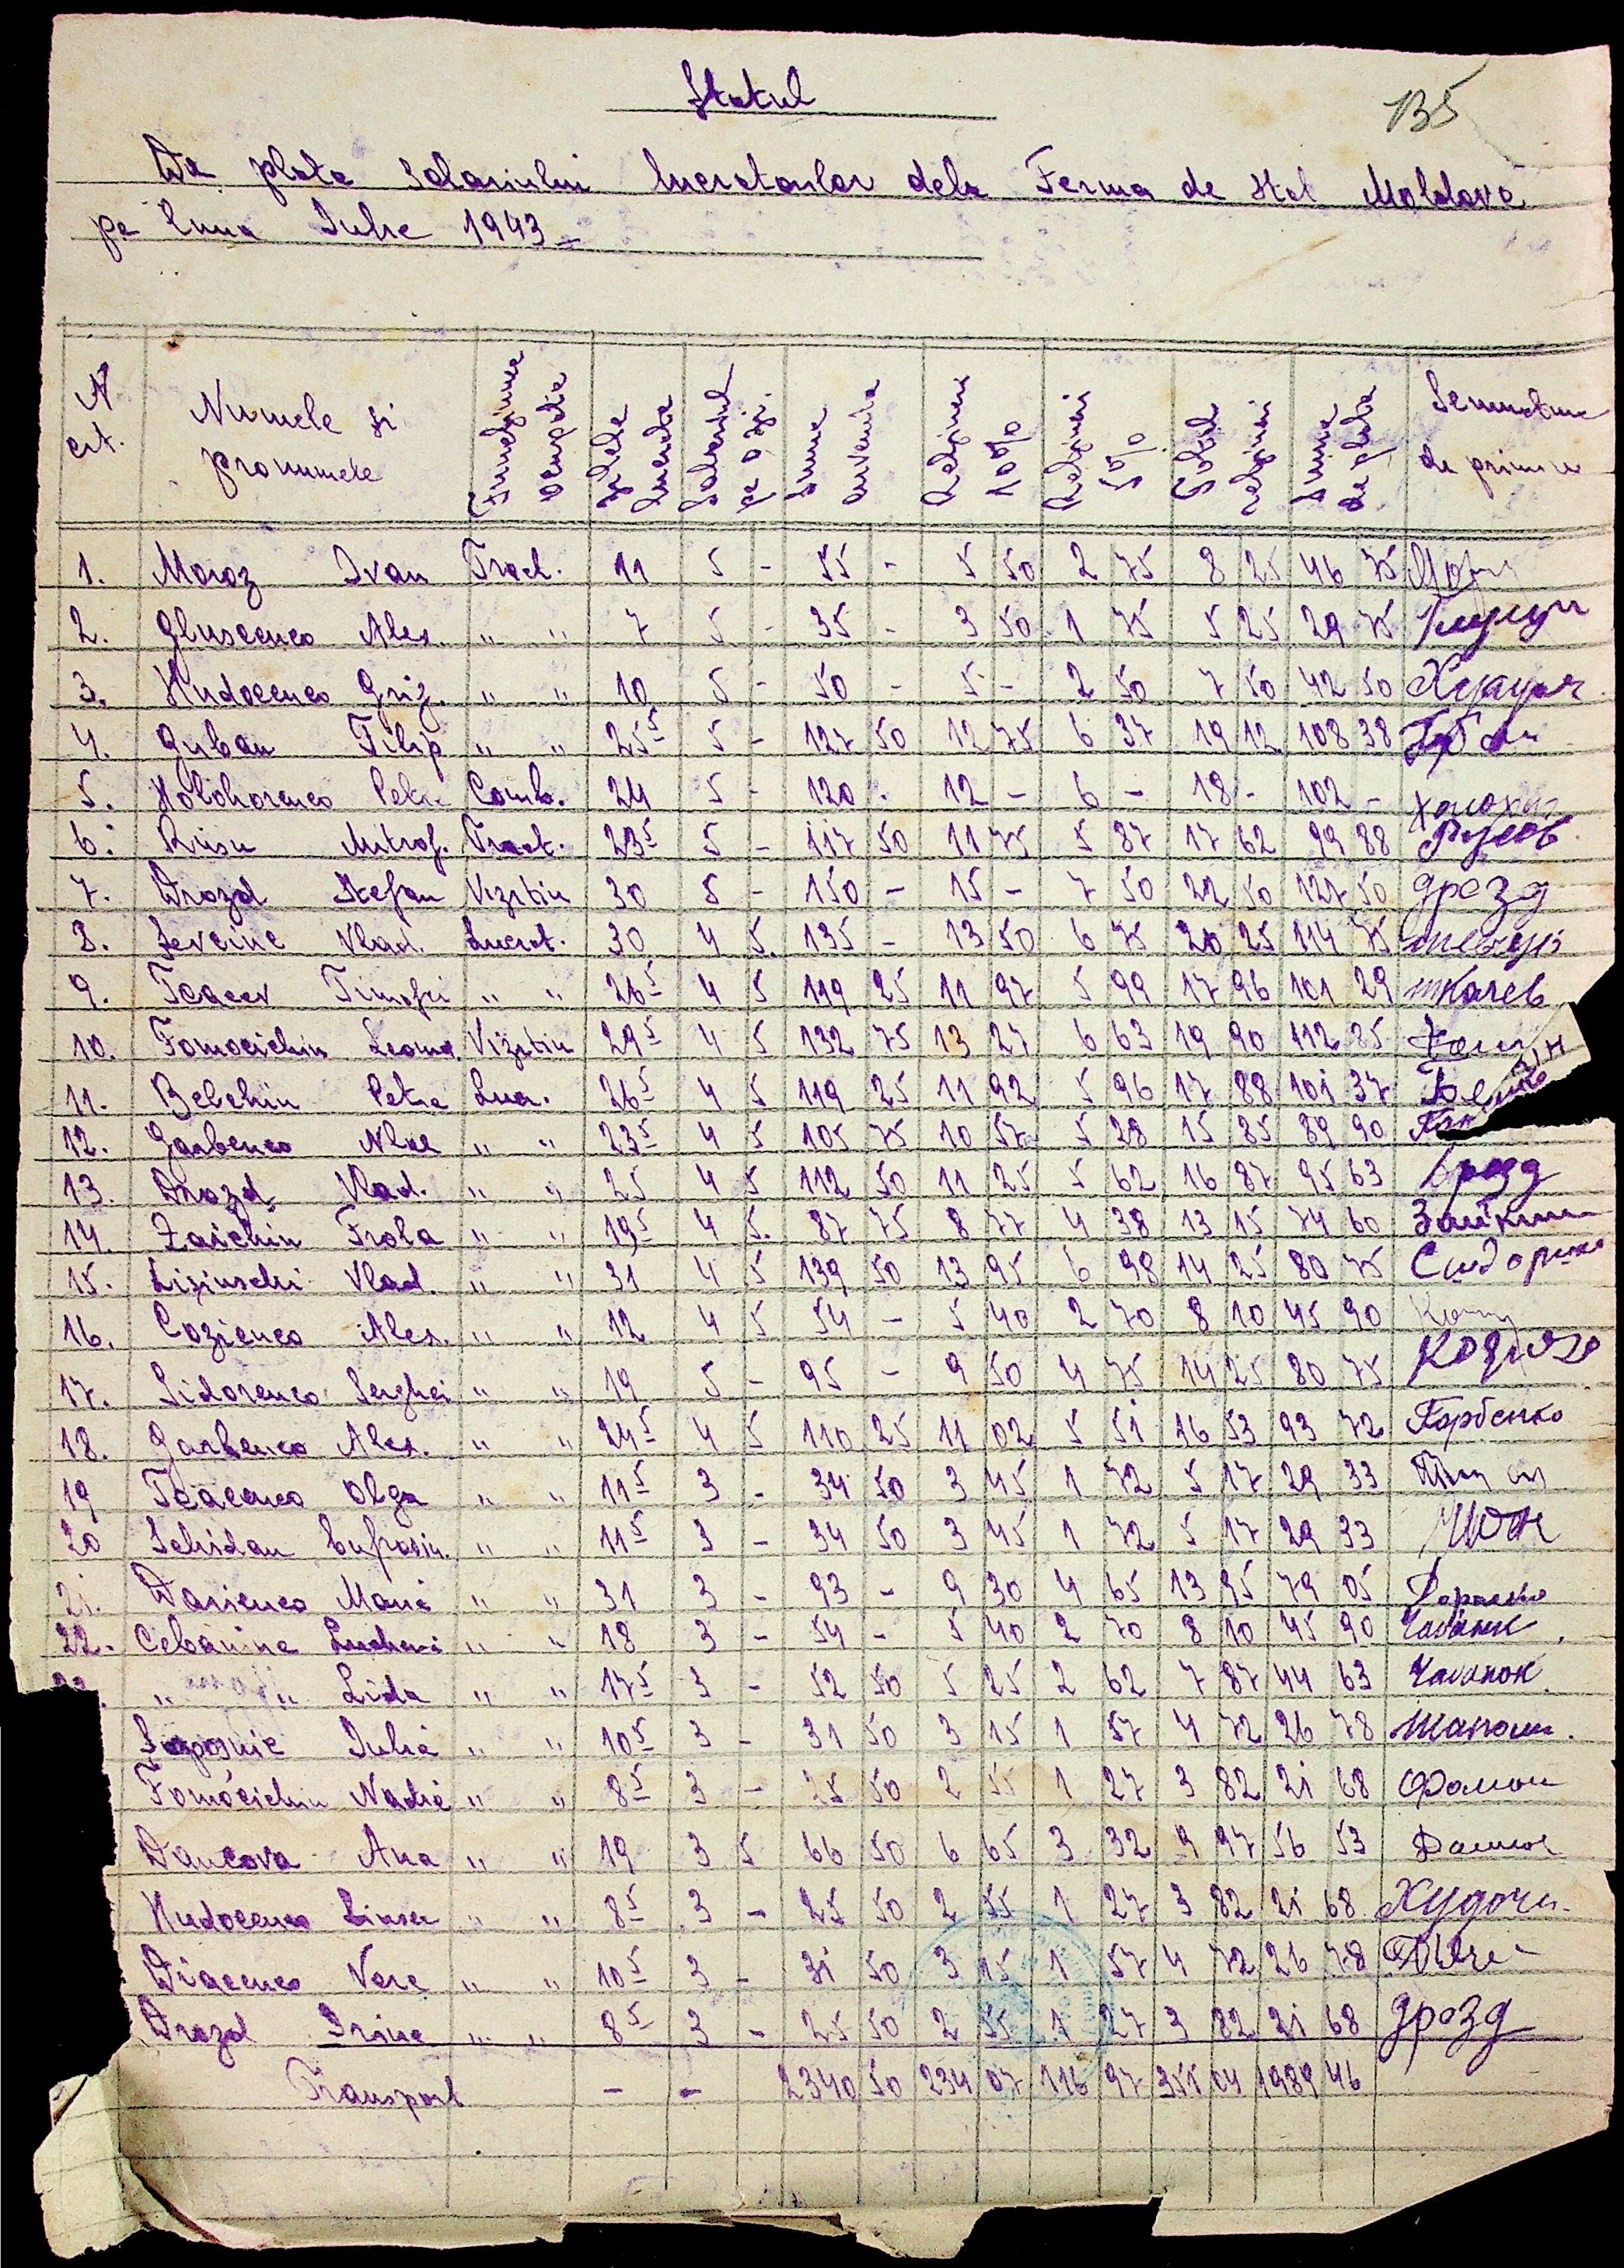 135
Statul
De plata salariului lucratorilor dela Ferma de Stat Moldova
pe luna Iulie 1943
N crt. Numele si pronumele Indeletnicirea ocupatia Zilele lucrate Salariul pe o zi Suma cuvenita Retineri 10% Retineri 5% Total retineri Suma de plata Semnatura de primire
1. Moroz Ivan Tract. 11 5 - 55 - 5 50 2 75 8 25 46 75
2. Gluscenco Alex. " " 7 5 - 35 - 3 50 1 75 5 25 29 75
3. Hudocenco Grig. " " 10 5 - 50 - 5 - 2 50 7 50 42 50
4. Guban Filip " " 25 5 5 - 127 50 12 75 6 37 19 12 108 38 Губан
5. Holohorenco Petru Comb. 24 5 - 120 - 12 - 6 - 18 - 102 -
6. Rusu Mitrof. Tract. 23 5 5 - 117 50 11 75 5 87 17 62 99 88 Русов
7. Drozd Stefan Vizitiu 30 5 - 150 - 15 - 7 50 22 50 127 50 дрозд
8. Sevcinc Vlad. Lucrat. 30 4 5. 135 - 13 50 6 75 20 25 114 75
9. Tcacev Timofei " " 26 5 4 5 119 25 11 97 5 99 17 96 101 29 ткачев
10. Fomocichin Leone. Vizitiu 29 5 4 5 132 75 13 27 6 63 19 90 112 85
11. Belchin Petre Lucr. 26 5 4 5 119 25 11 92 5 96 17 88 101 37
12. Garbenco Alxe " " 23 5 4 5 105 75 10 57 5 28 15 85 89 90
13. Drozd Vlad. " " 25 4 5 112 50 11 25 5 62 16 87 95 63 Дрозд
14. Zaichin Frola " " 19 5 4 5. 87 75 8 77 4 38 13 15 74 60 Зайкин
15. Lisinschi Vlad. " " 31 4 5 139 50 13 95 6 98 14 25 80 75 Сидорико
16. Cozienco Alex. " " 12 4 5 54 - 5 40 2 70 8 10 45 90
17. Sidorenco Serghei " " 19 5 - 95 - 9 50 4 75 14 25 80 75
18. Garbenco Alex. " " 24 5 4 5 110 25 11 02 5 51 16 53 93 72 Горбенко
19 Tcacenco Olga " " 11 5 3 - 34 50 3 45 1 72 5 17 29 33
20 Schidan Eufrosin. " " 11 5 3 - 34 50 3 45 1 72 5 17 29 33
21. Darienco Maria " " 31 3 - 93 - 9 30 4 65 13 95 79 05
22. Cebanina Lucheri " " 18 3 - 54 - 5 40 2 70 8 10 45 90
" " Lida " " 17 5 3 - 52 50 5 25 2 62 7 87 44 63 Чабанок
Saposnic Iulia " " 10 5 3 - 31 50 3 15 1 57 4 72 26 78 Шапошн.
Fomocichin Nadia " " 8 5 3 - 25 50 2 55 1 27 3 82 21 68 Фомон
Dancova Ana " " 19 3 5 66 50 6 65 3 32 9 97 56 53
Hudocenco Linsen " " 8 5 3 - 25 50 2 55 1 27 3 82 21 68 Худочи-
Diacenco Vera " " 10 5 3 - 31 50 3 15 1 57 4 72 26 78
Drozd Irina " " 8 5 3 - 25 50 2 55 1 27 3 82 21 68 дрозд
Transport - - 2340 50 234 07 116 97 351 04 1989 46